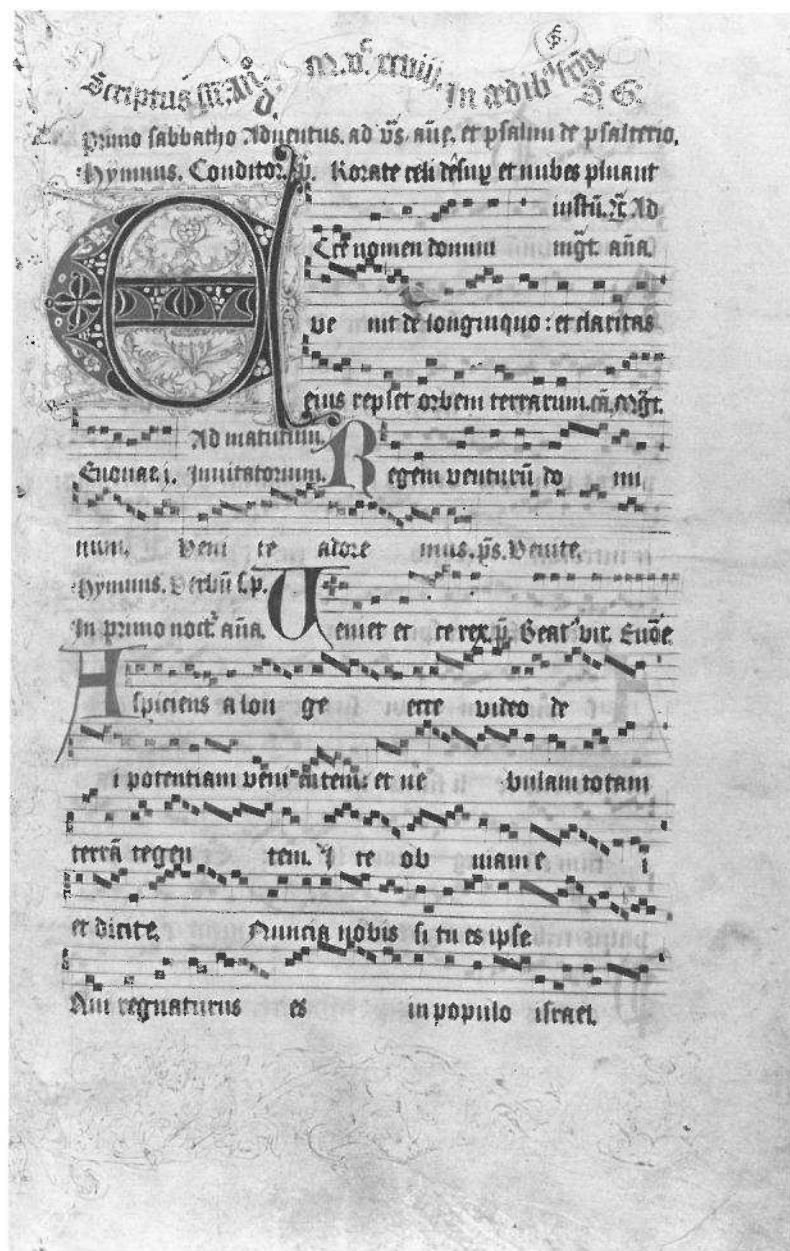 Scriptus sū. Añ d. M. vᶜ xxviij. In ædibᵒ S. G.
Primo sabbatho Aduentus. ad v̄s. añe. et psalmi de psalterio.
Hymnus. Conditor. Rorate celi desup et nubes pluant
iustū. Ad
Ecce nomen domini mḡt. aña.
ve nit de longinquo : et claritas
eius replet orbem terrarum. Mḡt.
Ad matutinum.
Euouae j. Inuitatorium. Regem venturū do mi
num. Veni te adore mus. p̄s. Venite.
Hymnus. Verbū s.p.
In primo noct. aña. Veniet ec ce rex. p̄. Beatᵒ vir. Euōe
Aspiciens a lon ge ecce video de
i potentiam veni entem : et ne bulam totam
terrā tegen tem. I te ob uiam e i
et dicite. Nuncia nobis si tu es ipse
Qui regnaturus es in populo israel.